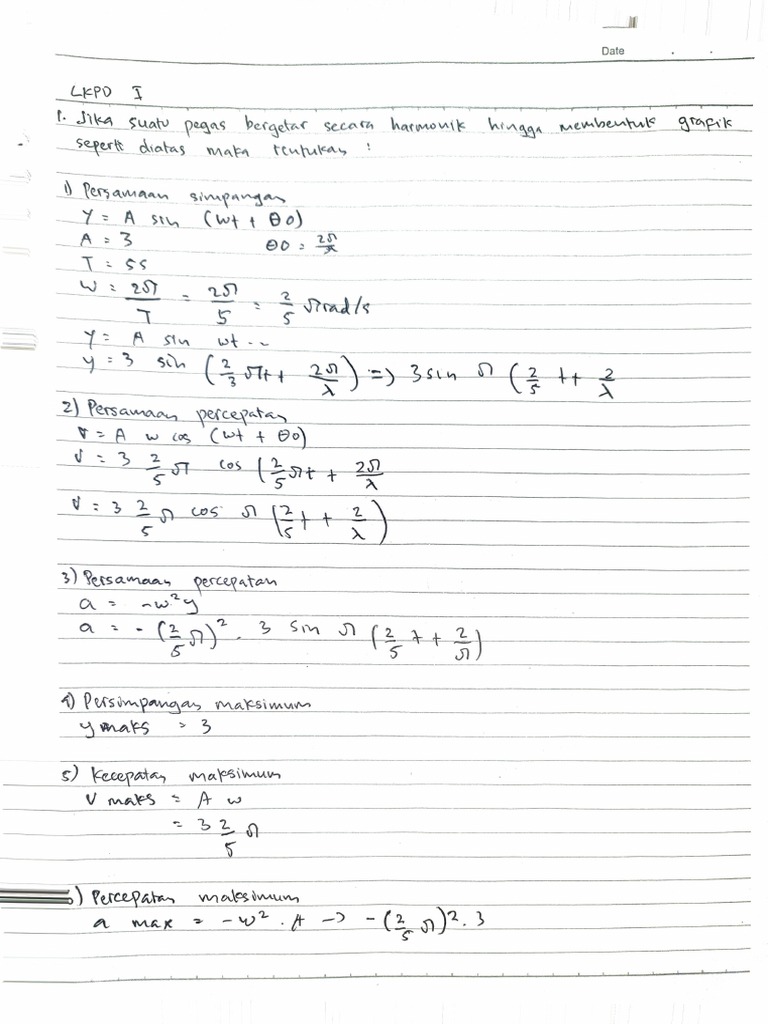 Date . .
LKPD I
1. Jika suatu pegas bergetar secara harmonik hingga membentuk grafik
seperti diatas maka tentukan :
1) Persamaan simpangan
Y = A sin (wt + θ0)
A = 3 θ0 = 2π/λ
T = 5s
W = 2π/T = 2π/5 = 2/5 π rad/s
Y = A sin wt ..
y = 3 sin (2/3 πt + 2π/λ) => 3 sin π (2/5 t + 2/λ
2) Persamaan percepatan
v = A w cos (wt + θ0)
v = 3 2/5 π cos (2/5 πt + 2π/λ
v = 3 2/5 π cos π (2/5 t + 2/λ)
3) Persamaan percepatan
a = -w²y
a = - (2/5 π)² . 3 sin π (2/5 t + 2/π)
4) Persimpangan maksimum
y maks = 3
5) Kecepatan maksimum
V maks = A w
= 3 2/5 π
6) Percepatan maksimum
a max = -w² . A -> -(2/5 π)² . 3